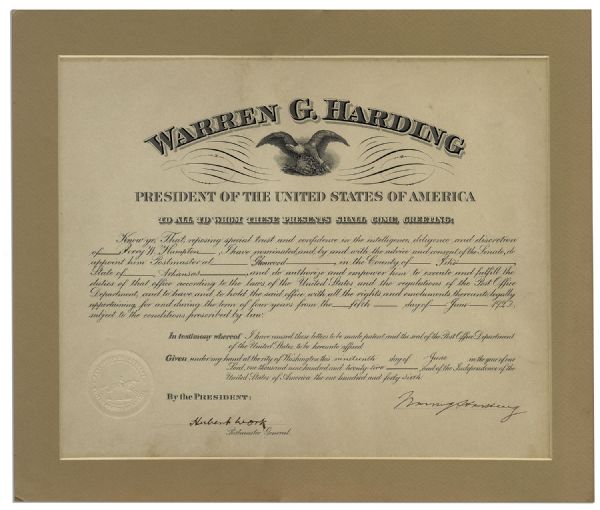 WARREN G. HARDING
PRESIDENT OF THE UNITED STATES OF AMERICA
TO ALL TO WHOM THESE PRESENTS SHALL COME, GREETING:
Know ye, That, reposing special trust and confidence in the intelligence, diligence, and discretion
of W. Hampton, I have nominated, and, by and with the advice and consent of the Senate, do
appoint him Postmaster at Glenwood, in the County of Pike
State of Arkansas, and do authorize and empower him to execute and fulfill the
duties of that office according to the laws of the United States and the regulations of the Post Office
Department, and to have and to hold the said office, with all the rights and emoluments thereunto legally
appertaining, for and during the term of four years from the fifth day of June 1922,
subject to the conditions prescribed by law.
In testimony whereof I have caused these letters to be made patent, and the seal of the Post Office Department
of the United States to be hereunto affixed.
Given under my hand at the city of Washington this nineteenth day of June in the year of our
Lord, one thousand nine hundred and twenty-two and of the Independence of the
United States of America the one hundred and forty sixth.
By the PRESIDENT:
Warren G Harding
Hubert Work
Postmaster General.